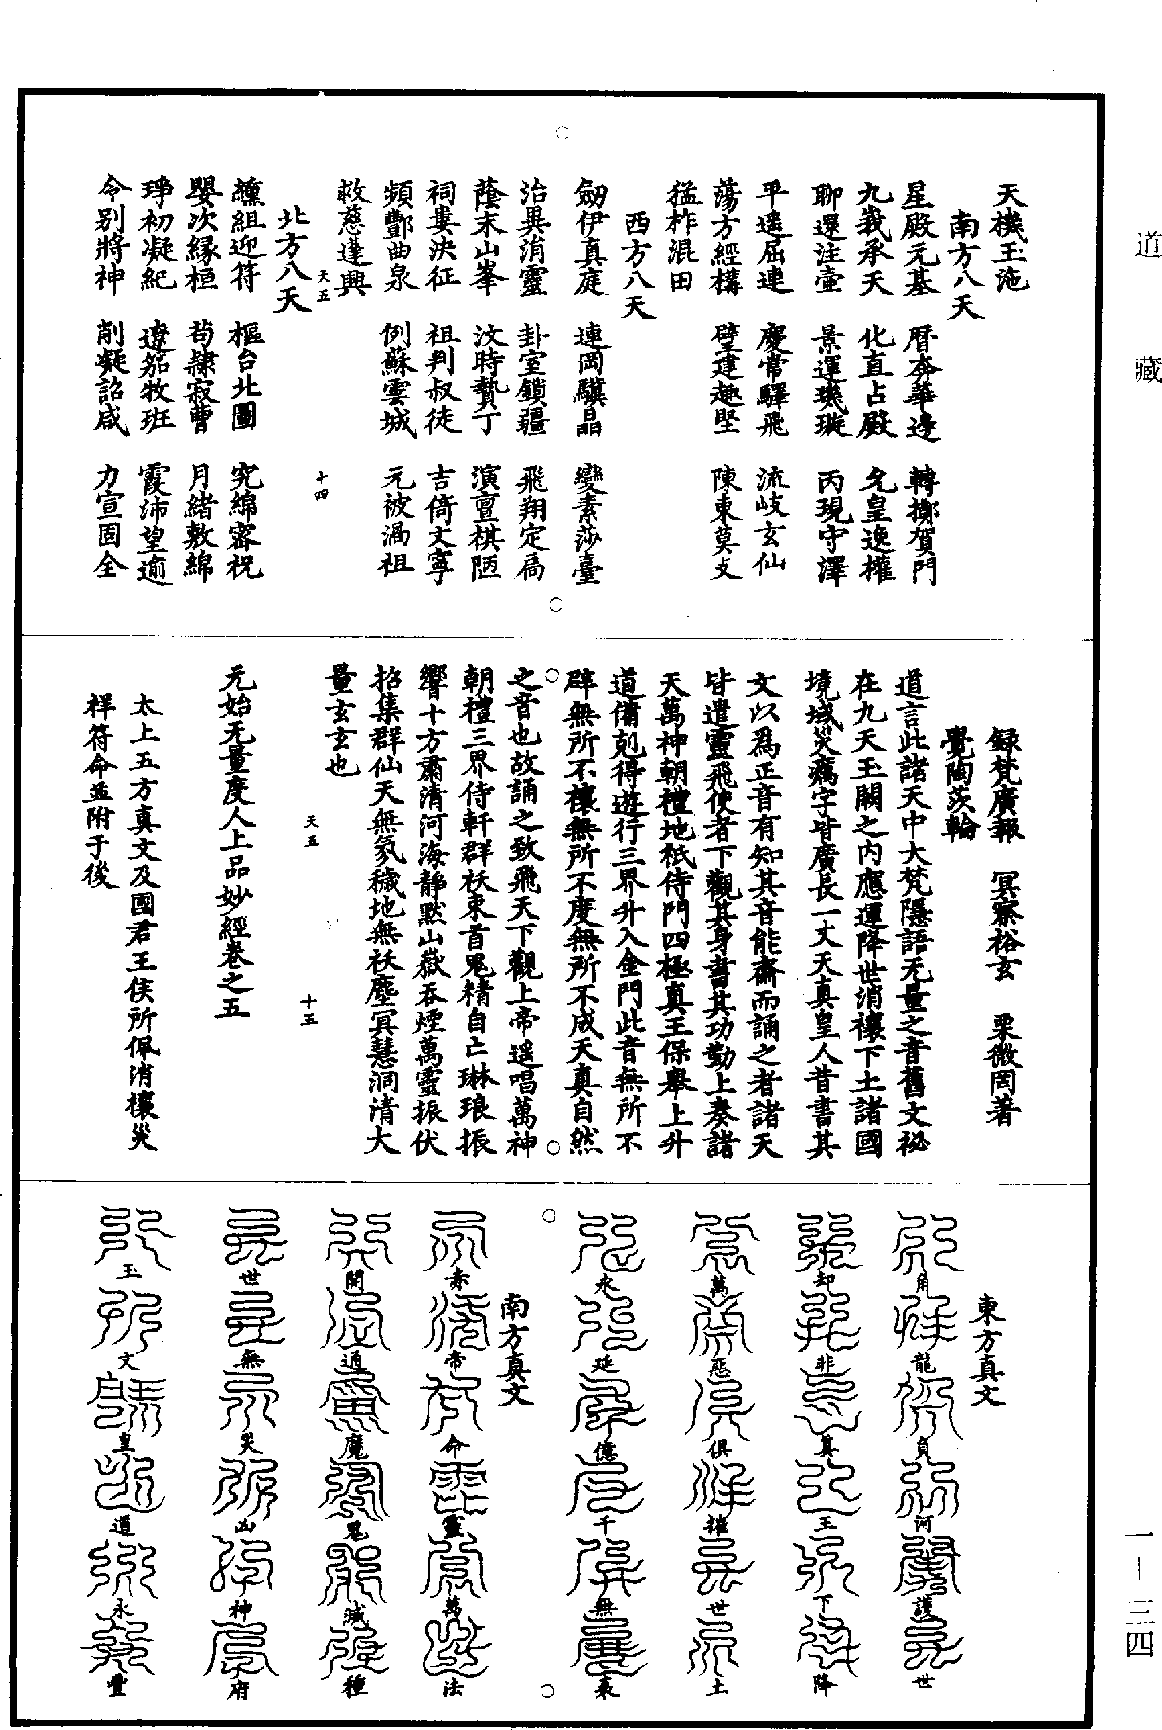 道藏
一—三四
天機王沲
南方八天
星殿元基 曆奔華逢 轉擲賀門
九莪承天 化直占殿 允皇逸權
聊還注壷 景運璣璇 丙現守澤
平遥屈連 慶常驛飛 流岐玄仙
蕩方經構 壁建趣堅 陳東莫支
猛柞混田
西方八天
劒伊真庭 連岡驥晶 變素莎臺
治異消靈 卦室鎖疆 飛翔定局
蔭末山峯 汶時贄丁 演亶棋陋
祠婁決征 祖判叔徒 吉倚文寧
頻酆曲泉 例蘇雲城 元被渦祖
救慈蓬興
天五 十四
北方八天
纁組迎符 樞台北圖 究綿審祝
嬰次緣桓 苟隸寂曹 月緒敷綿
琤初凝紀 遼笳牧班 霞沛望逾
令别將神 削凝詔咸 力宣固全
録梵廣報 冥察裕玄 栗微罔著
覺陶茨輪
道言此諸天中大梵隱語无量之音舊文祕
在九天王闕之内應運降世消禳下土諸國
境域災癘字皆廣長一丈天真皇人昔書其
文以爲正音有知其音能齋而誦之者諸天
皆遣靈飛使者下觀其身書其功勤上奏諸
天萬神朝禮地祇侍門四極真王保舉上升
道備剋得遊行三界升入金門此音無所不
辟無所不禳無所不度無所不成天真自然
之音也故誦之致飛天下觀上帝遥唱萬神
朝禮三界侍軒群袄束首鬼精自亡琳琅振
響十方肅清河海静默山嶽吞煙萬靈振伏
招集群仙天無氛穢地無袄塵冥慧洞清大
量玄玄也
天五 十五
元始无量度人上品妙經卷之五
太上五方真文及國君王侯所佩消禳災
祥符命並附于後
東方真文
角龍負河護世
却非真王下降
萬惡俱摧世土
永延億千無衰
南方真文
赤帝命靈萬法
開通魔鬼滅種
世無災凶神府
玉文皇道永豐